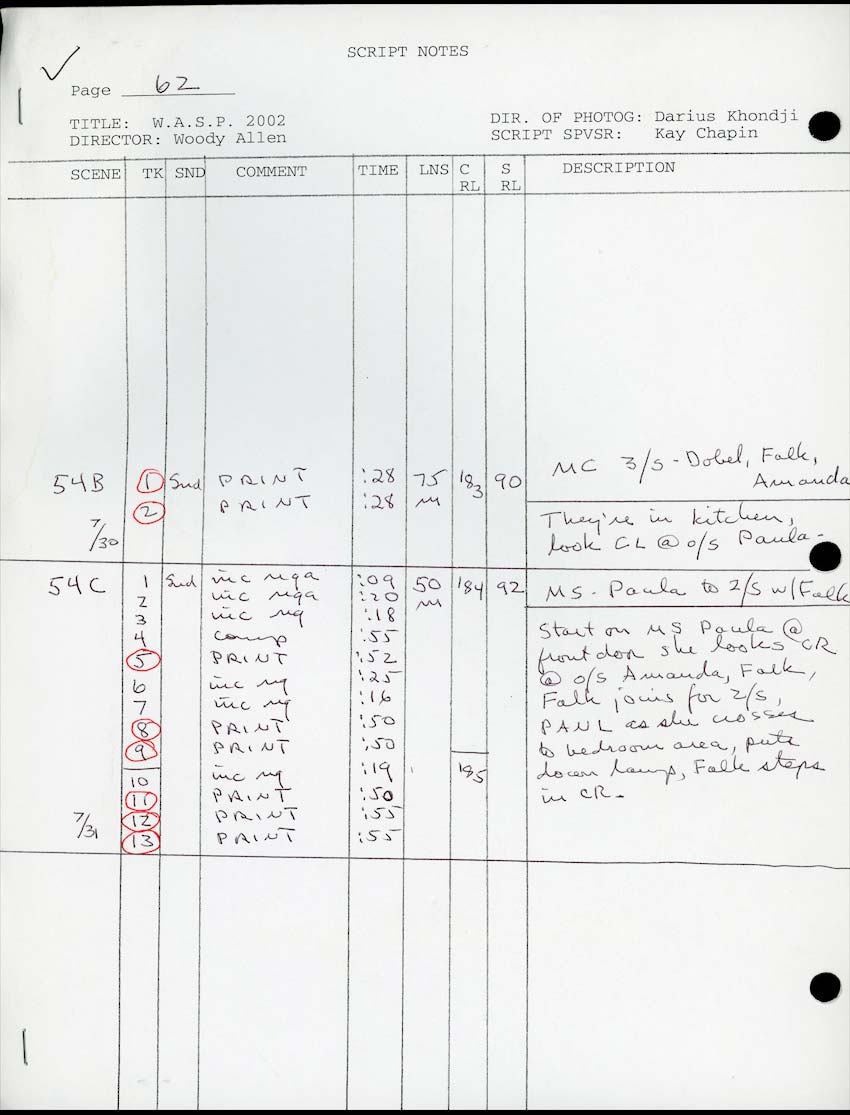 SCRIPT NOTES
Page 62
TITLE: W.A.S.P. 2002 DIR. OF PHOTOG: Darius Khondji
DIRECTOR: Woody Allen SCRIPT SPVSR: Kay Chapin
SCENE TK SND COMMENT TIME LNS C RL S RL DESCRIPTION
54B 1 Snd PRINT :28 75 183 90 MC 3/S - Dobel, Falk,
Amanda
2 PRINT :28 m They're in kitchen,
7/30 look CL @ o/s Paula-
54C 1 Snd inc nga :09 50 184 92 MS - Paula to 2/S w/Falk
2 inc nga :20 m
3 inc ng :18 Start on MS Paula @
4 comp :55 front door she looks CR
5 PRINT :52 @ o/s Amanda, Falk,
6 inc ng :25 Falk joins for 2/S,
7 inc ng :16 PANL as she crosses
8 PRINT :50 to bedroom area, puts
9 PRINT :50 down lamp, Falk steps
10 inc ng :19 185 in CR.
11 PRINT :50
7/31 12 PRINT :55
13 PRINT :55